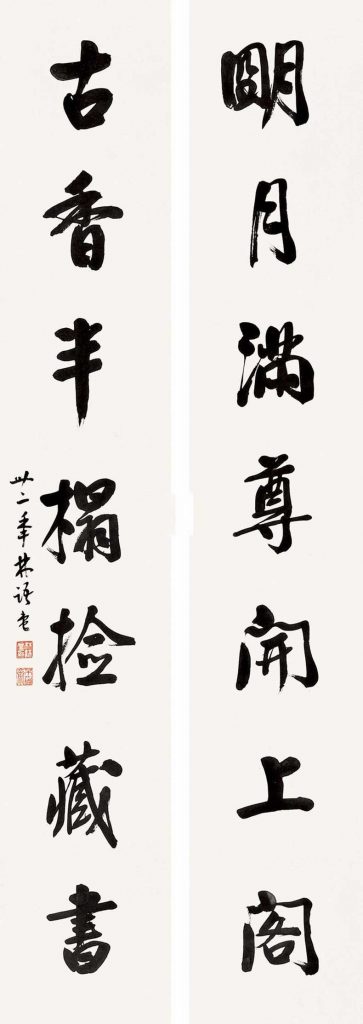 朙月滿尊開上閣
古香半榻撿藏書
卅二年林語堂